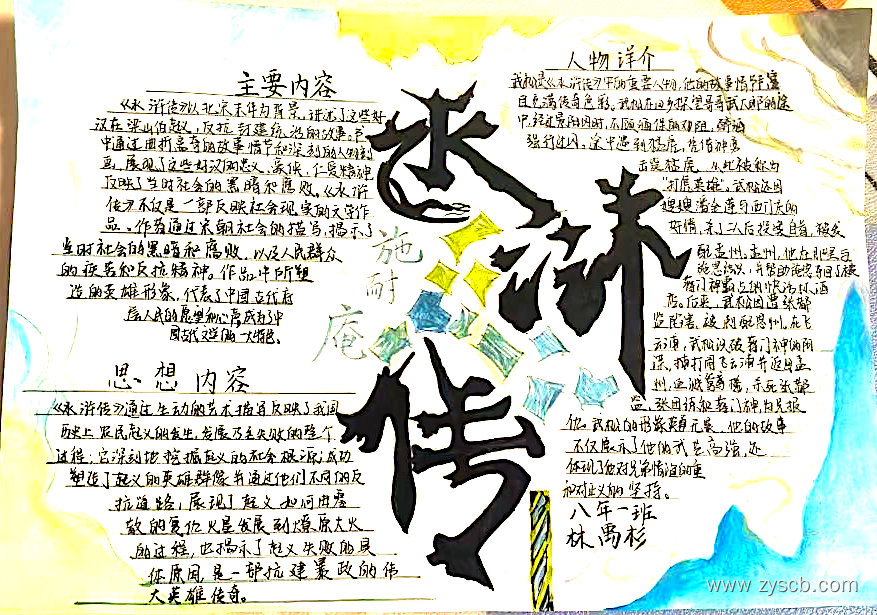 主要内容
《水浒传》以北宋末年为背景，讲述了这些好
汉在梁山伯起义，反抗封建统治的故事。书
中通过曲折离奇的故事情节和深刻的人物刻
画，展现了这些好汉的忠义、豪侠、仁爱精神
反映了当时社会的黑暗和腐败。《水浒
传》不仅是一部反映社会现实的文学作
品。作者通过宋朝社会的描写，揭示了
当时社会的黑暗和腐败，以及人民群众
的疾苦和反抗精神。作品中所塑
造的英雄形象，代表了中国古代府
层人民的愿望和心声成为了中
国古代文学的一大特色。
思想内容
《水浒传》通过生动的艺术描写反映了我国
历史上农民起义的发生、发展乃至失败的整个
过程；它深刻地挖掘起义的社会根源；成功
塑造了起义的英雄群像并通过他们不同的反
抗道路，展现了起义如何由零
散的复仇火星发展到燎原大火
的过程，也揭示了起义失败的具
体原因，是一部抗建暴政的伟
大英雄传奇。
水浒传
施耐庵
人物详介
武松是《水浒传》中的重要人物，他的故事情节丰富
且充满传奇色彩。武松在回乡探望哥哥武大郎的途
中，经过景阳冈时，不顾酒保的劝阻，醉酒
强行过冈。途中遇到猛虎，凭借神勇
击毙猛虎，从此被称为
"打虎英雄"。武松因
嫂嫂潘金莲与西门庆的
奸情，杀了二人后投案自首，被发
配孟州。孟州，他在那里与
施恩结义，并帮助施恩夺回了被
蒋门神霸占的快活林酒
店。后来，武松因遭张都
监陷害，被刺配恩州，在飞
云浦，武松识破蒋门神的阴
谋，掉打闹飞云浦并返回孟
州，血溅鸳鸯楼，杀死张都
监，张团练和蒋门神为兄报
仇。武松的形象英勇无畏，他的故事
不仅展示了他的武艺高强，还
体现了他对兄弟情谊的重
和对正义的坚持。
八年一班
林禹杉
www.zyscb.com